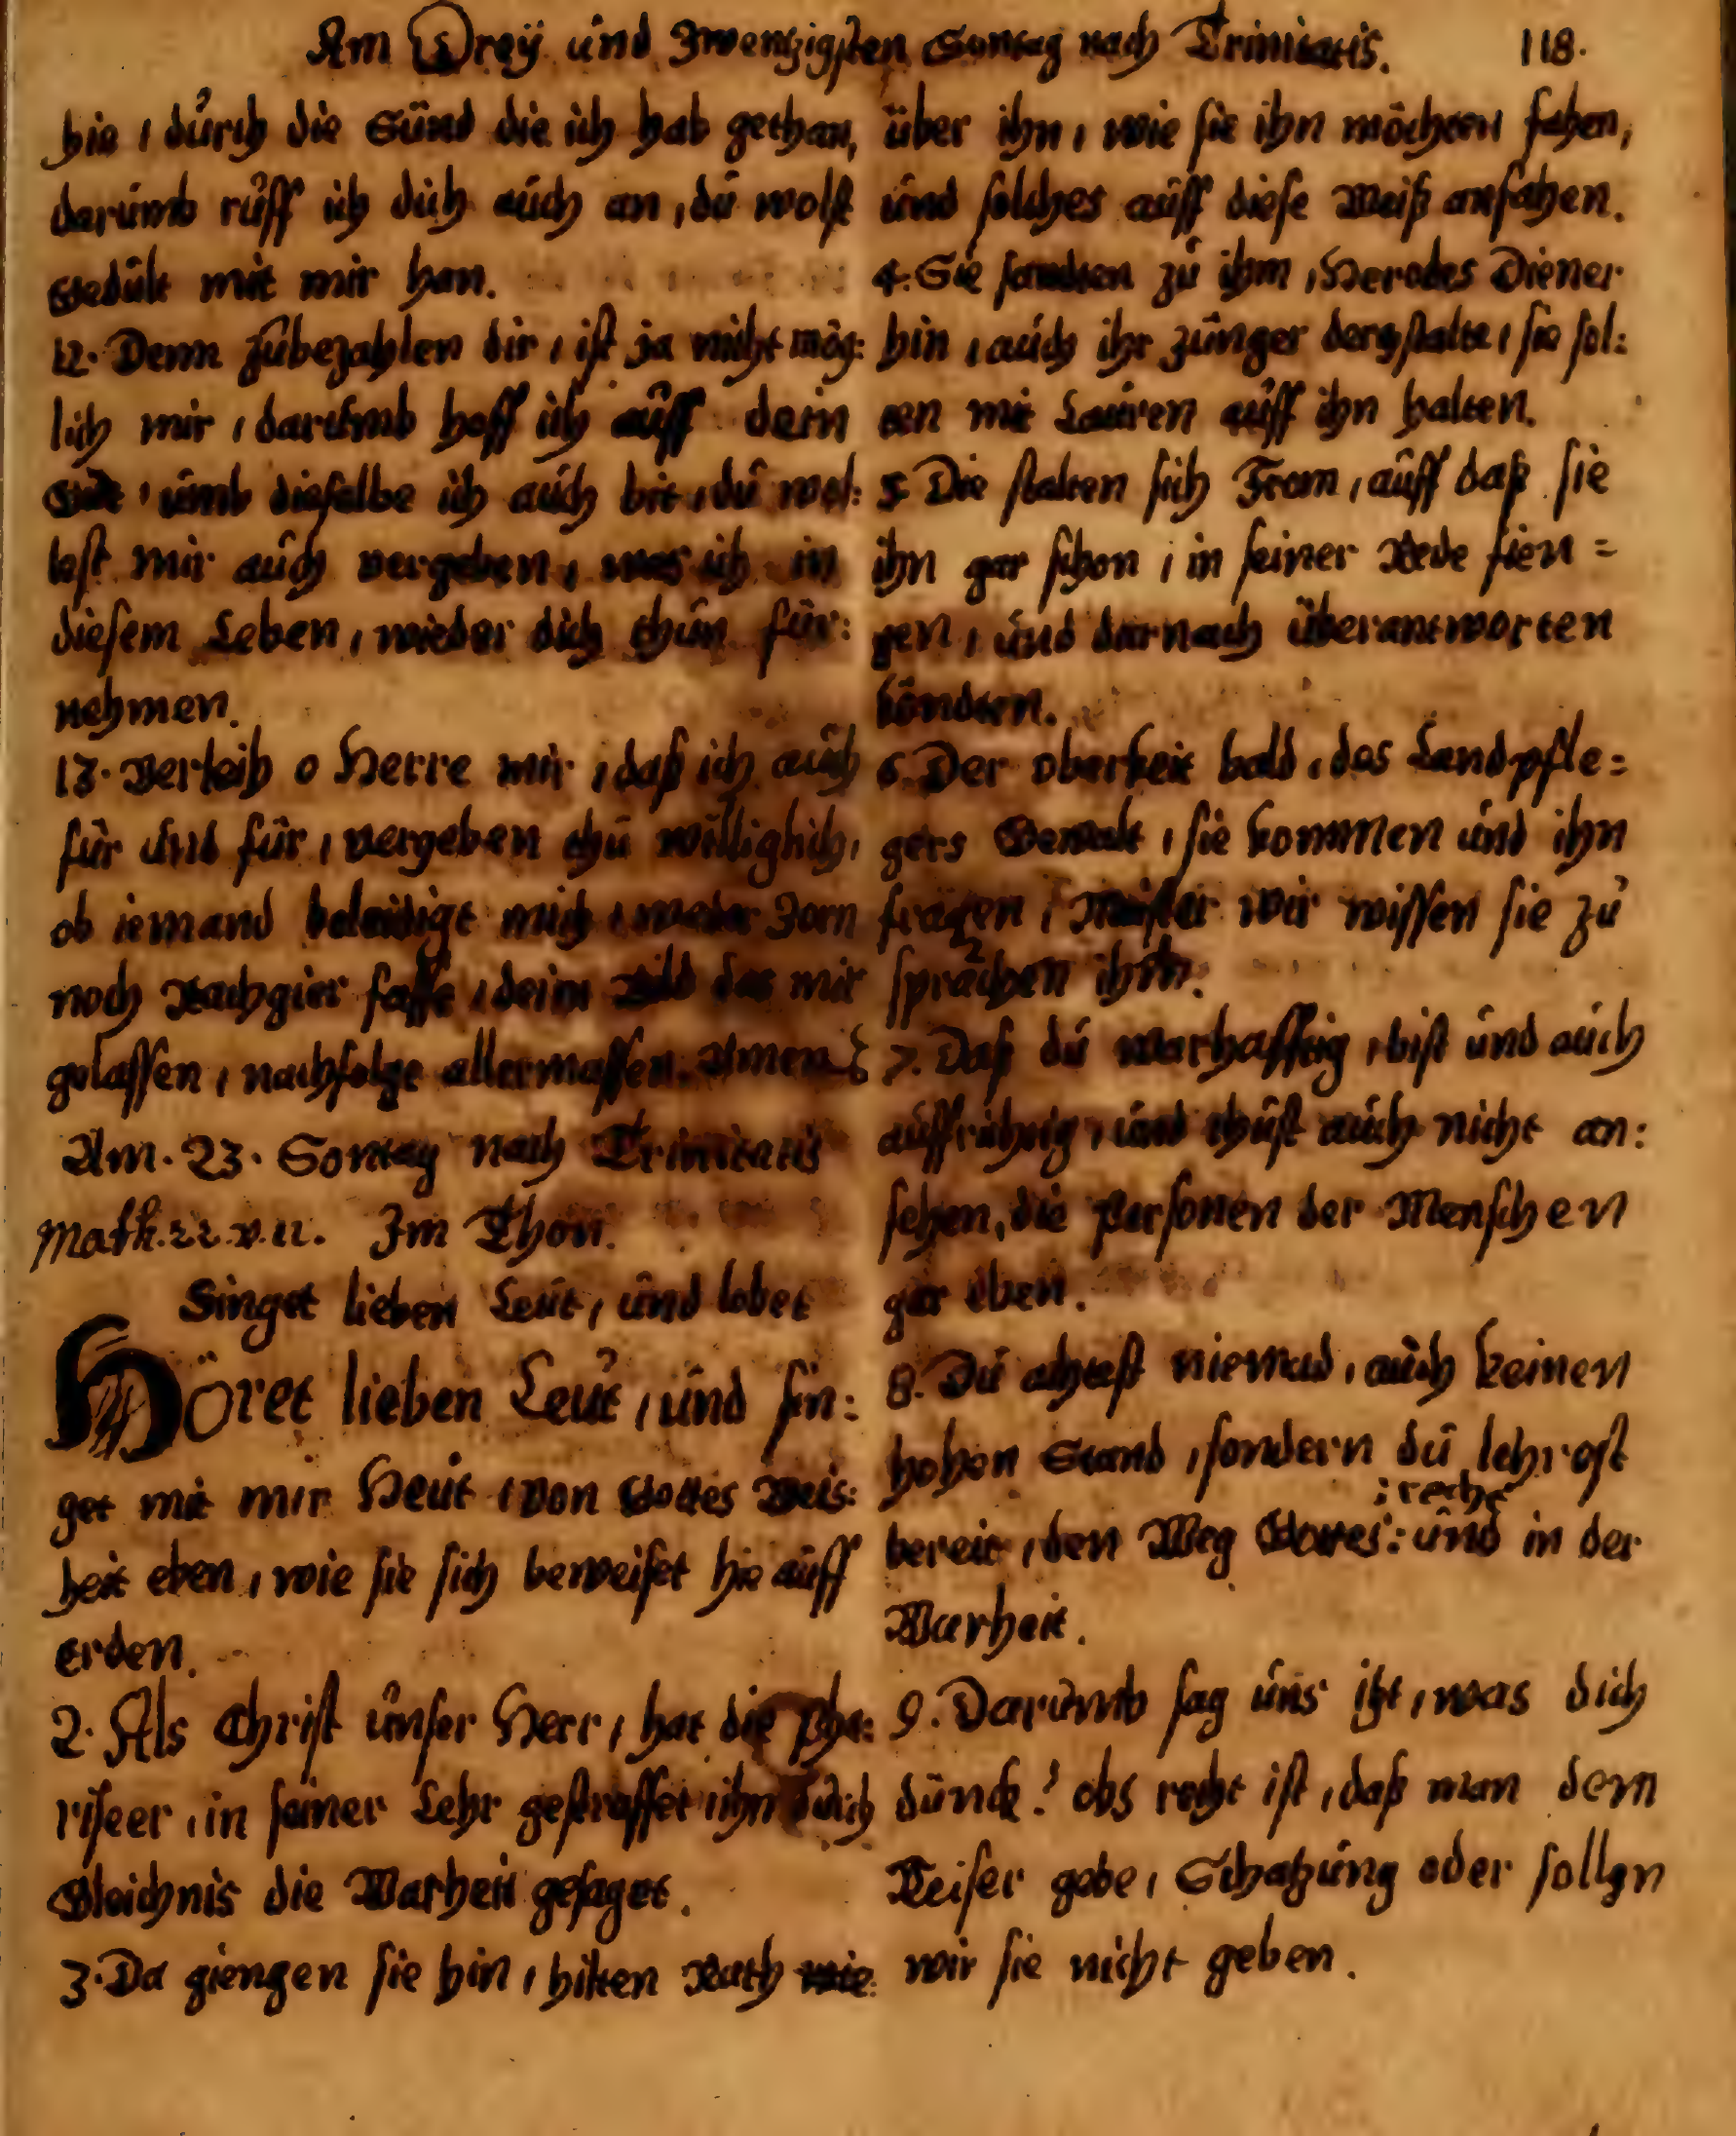 Am Dreÿ und Zwentzigsten Sontag nach Trinitatis. 118.
hie / durch die Sünd die ich hab gethan,
darumb ruff ich dich auch an, du wolst
Gedult mit mir han.
12. Denn zubezahlen dir, ist ja nicht mög:
lich mir, darumb hoff ich auff dein
Güt, umb dieselbe ich auch bit, du wol:
lest mir auch vergeben, was ich in
diesem Leben, wieder dich thun für:
nehmen.
13. Verleih o Herre mir, daß ich auch
für und für, vergeben thu williglich,
ob iemand beleidigt mich, weder Zorn
noch Rachgier fasse, deim Bild das mir
gelassen, nachfolge allermassen. Amen
Am. 23. Sontag nach Trinitatis
Math. 22. v. 11. Im Thon.
Singet lieben Leut, und lobet
Höret lieben Leut, und sin:
get mit mir Heut, von Gottes Weis:
heit eben, wie sie sich beweiset hie auff
erden.
2. Als Christ unser Herr, hat die Pha:
riseer, in seiner Lehr gestraffet, ihn durch
Gleichnis die Warheit gesaget.
3. Da giengen sie hin, hilten Rath wie:
über ihn, wie sie ihn möchten fahen,
und solches auff diese Weiß anfahen.
4. Sie sandten zu ihm, Herodes Diener
hin, auch ihr Jünger dergstalte, sie sol:
ten mit Lauren auff ihn halten.
5. Die stalten sich From, auff daß sie
ihn gar schon, in seiner Rede fien=
gen, und darnach überantworten
köndten.
6. Der oberkeit bald, des Landpfle=
gers Gewalt, sie kommen und ihn
fragen, Meister wir wissen sie zu
sprachen ihm.
7. Daß du warhafftig, bist und auch
auffrichtig, und thust auch nicht an:
sehen, die Personen der Menschen
gar eben.
8. Du achtest niemad, auch keinen
hohen Stand, sondern du lehrest
: recht
bereit, den Weg Gottes: und in der
Warheit.
9. Darumb sag uns itzt, was dich
dünck? obs recht ist, daß man dem
Keiser gebe, Schatzung oder sollen
wir sie nicht geben.